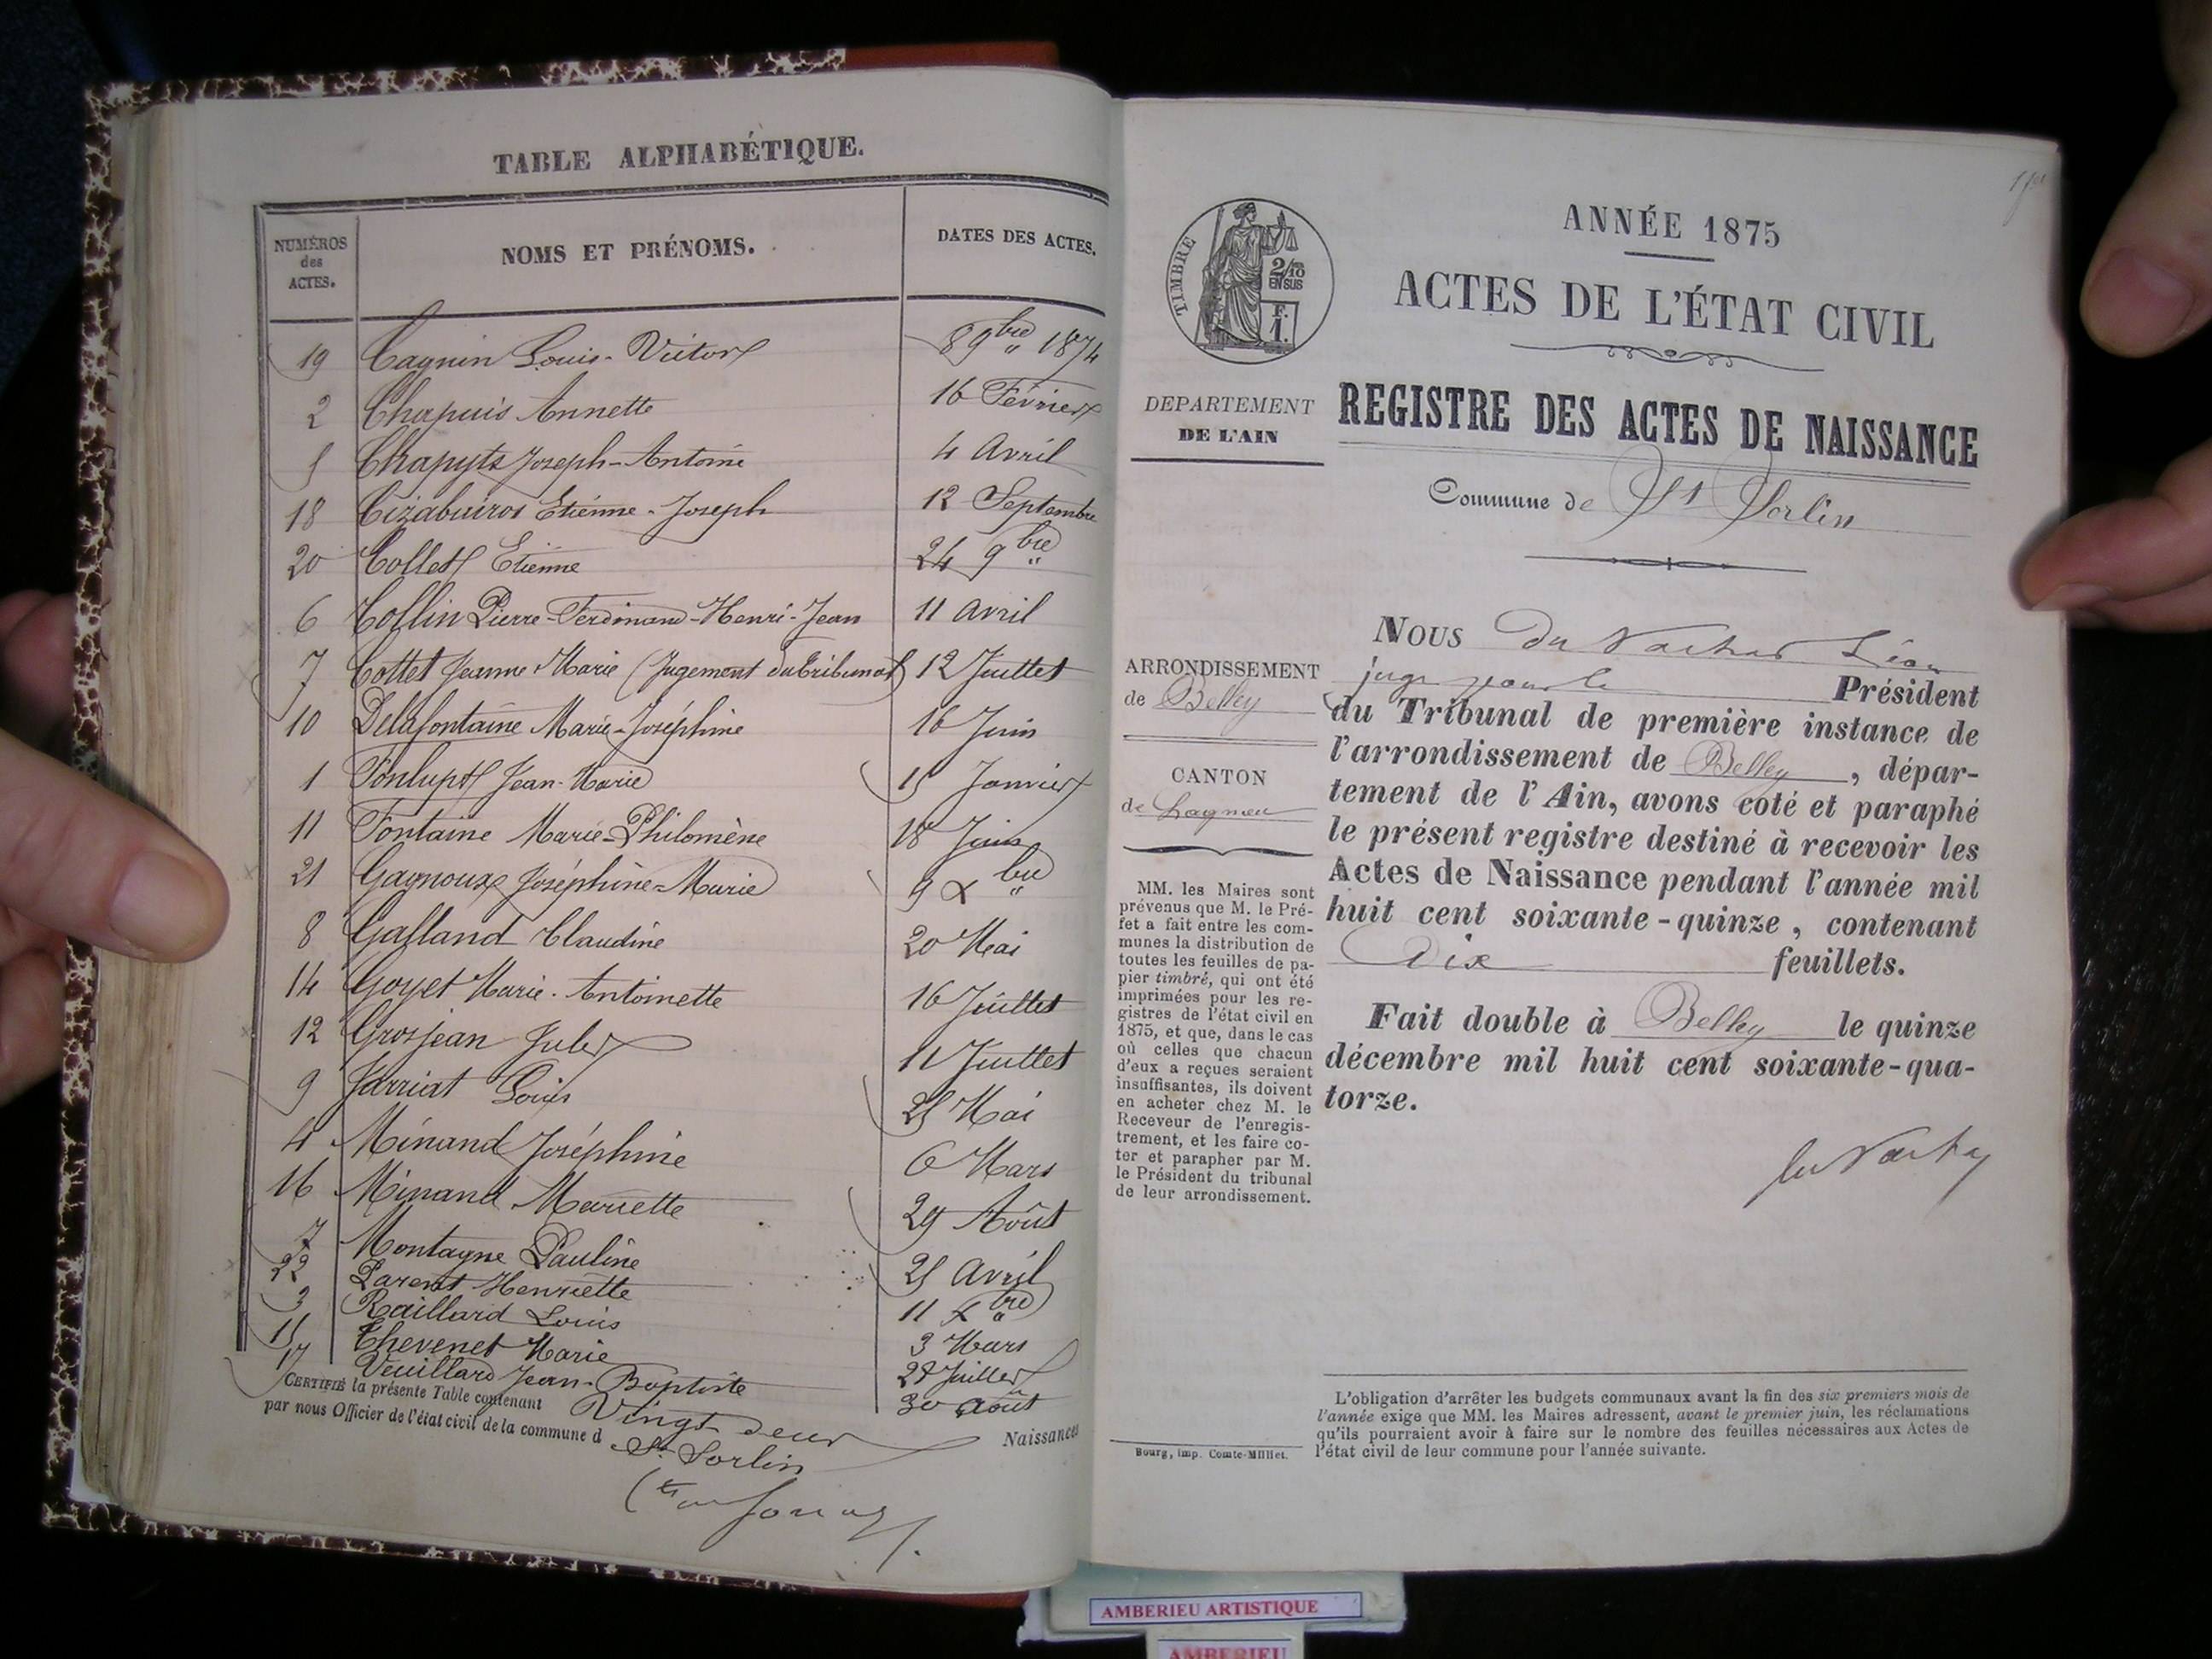 TABLE ALPHABÉTIQUE.
NUMÉROS des ACTES. NOMS ET PRÉNOMS. DATES DES ACTES.
19 Cagnin Louis-Victor 8 9bre 1874
2 Chapuis Annette 16 Février
5 Chapuys Joseph-Antoine 4 Avril
18 Etienne-Joseph 12 Septembre
20 Collet Etienne 24 9bre
6 Collin Pierre-Ferdinand-Henri-Jean 11 Avril
7 Cottet Jeanne Marie (Jugement du Tribunal) 12 Juillet
10 Delafontaine Marie-Joséphine 16 Juin
1 Fonlupt Jean-Marie 15 Janvier
11 Fontaine Marie-Philomène 18 Juin
21 Gagnoux Joséphine-Marie 9 Xbre
8 Galland Claudine 20 Mai
14 Goyet Marie-Antoinette 16 Juillet
12 Grosjean Jules 11 Juillet
9 Jarriat Louis 25 Mai
4 Minand Joséphine 6 Mars
16 Minand Mariette 29 Août
7 Montagne Pauline 25 Avril
22 Parent Henriette 11 Xbre
3 Raillard Louis 3 Mars
15 Thevenet Marie 28 Juillet
17 Veuillard Jean-Baptiste 30 Août
CERTIFIÉ la présente Table contenant Vingt deux Naissances
par nous Officier de l'état civil de la commune d St Sorlin
TIMBRE
2/10 EN SUS
F. 1.
ANNÉE 1875
ACTES DE L'ÉTAT CIVIL
DEPARTEMENT
DE L'AIN
REGISTRE DES ACTES DE NAISSANCE
Commune de St Sorlin
ARRONDISSEMENT
de Belley
CANTON
de Lagnieu
MM. les Maires sont
prévenus que M. le Pré-
fet a fait entre les com-
munes la distribution de
toutes les feuilles de pa-
pier timbré, qui ont été
imprimées pour les re-
gistres de l'état civil en
1875, et que, dans le cas
où celles que chacun
d'eux a reçues seraient
insuffisantes, ils doivent
en acheter chez M. le
Receveur de l'enregis-
trement, et les faire co-
ter et parapher par M.
le Président du tribunal
de leur arrondissement.
NOUS Du Léon
juge pour le Président
du Tribunal de première instance de
l'arrondissement de Belley, dépar-
tement de l'Ain, avons coté et paraphé
le présent registre destiné à recevoir les
Actes de Naissance pendant l'année mil
huit cent soixante-quinze, contenant
Dix feuillets.
Fait double à Belley le quinze
décembre mil huit cent soixante-qua-
torze.
L'obligation d'arrêter les budgets communaux avant la fin des six premiers mois de
l'année exige que MM. les Maires adressent, avant le premier juin, les réclamations
qu'ils pourraient avoir à faire sur le nombre des feuilles nécessaires aux Actes de
l'état civil de leur commune pour l'année suivante.
Bourg, imp. Comte-Milliet.
AMBERIEU ARTISTIQUE
AMBERIEU